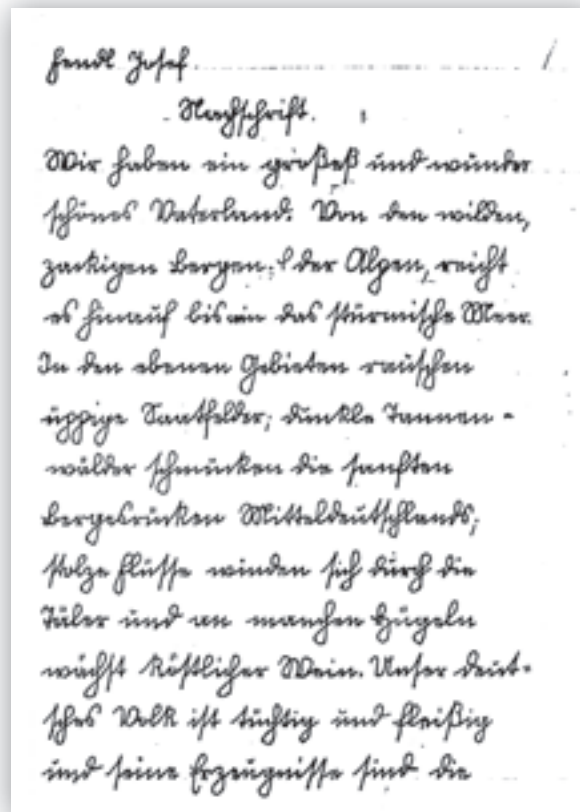 Hendl Josef.
Nachschrift.
Wir haben ein großeß und wunder
schönes Vaterland. Von den wilden,
zackigen Bergen, der Alpen, reicht
es hinauf bis an das stürmische Meer.
In den ebenen Gebieten rauschen
üppige Saatfelder; dunkle Tannen-
wälder schmücken die sanften
Bergesrücken Mitteldeutschlands;
stolze Flüsse winden sich durch die
Täler und an manchen Hügeln
wächst köstlicher Wein. Unser deut-
sches Volk ist tüchtig und fleißig
und seine Erzeugnisse sind die